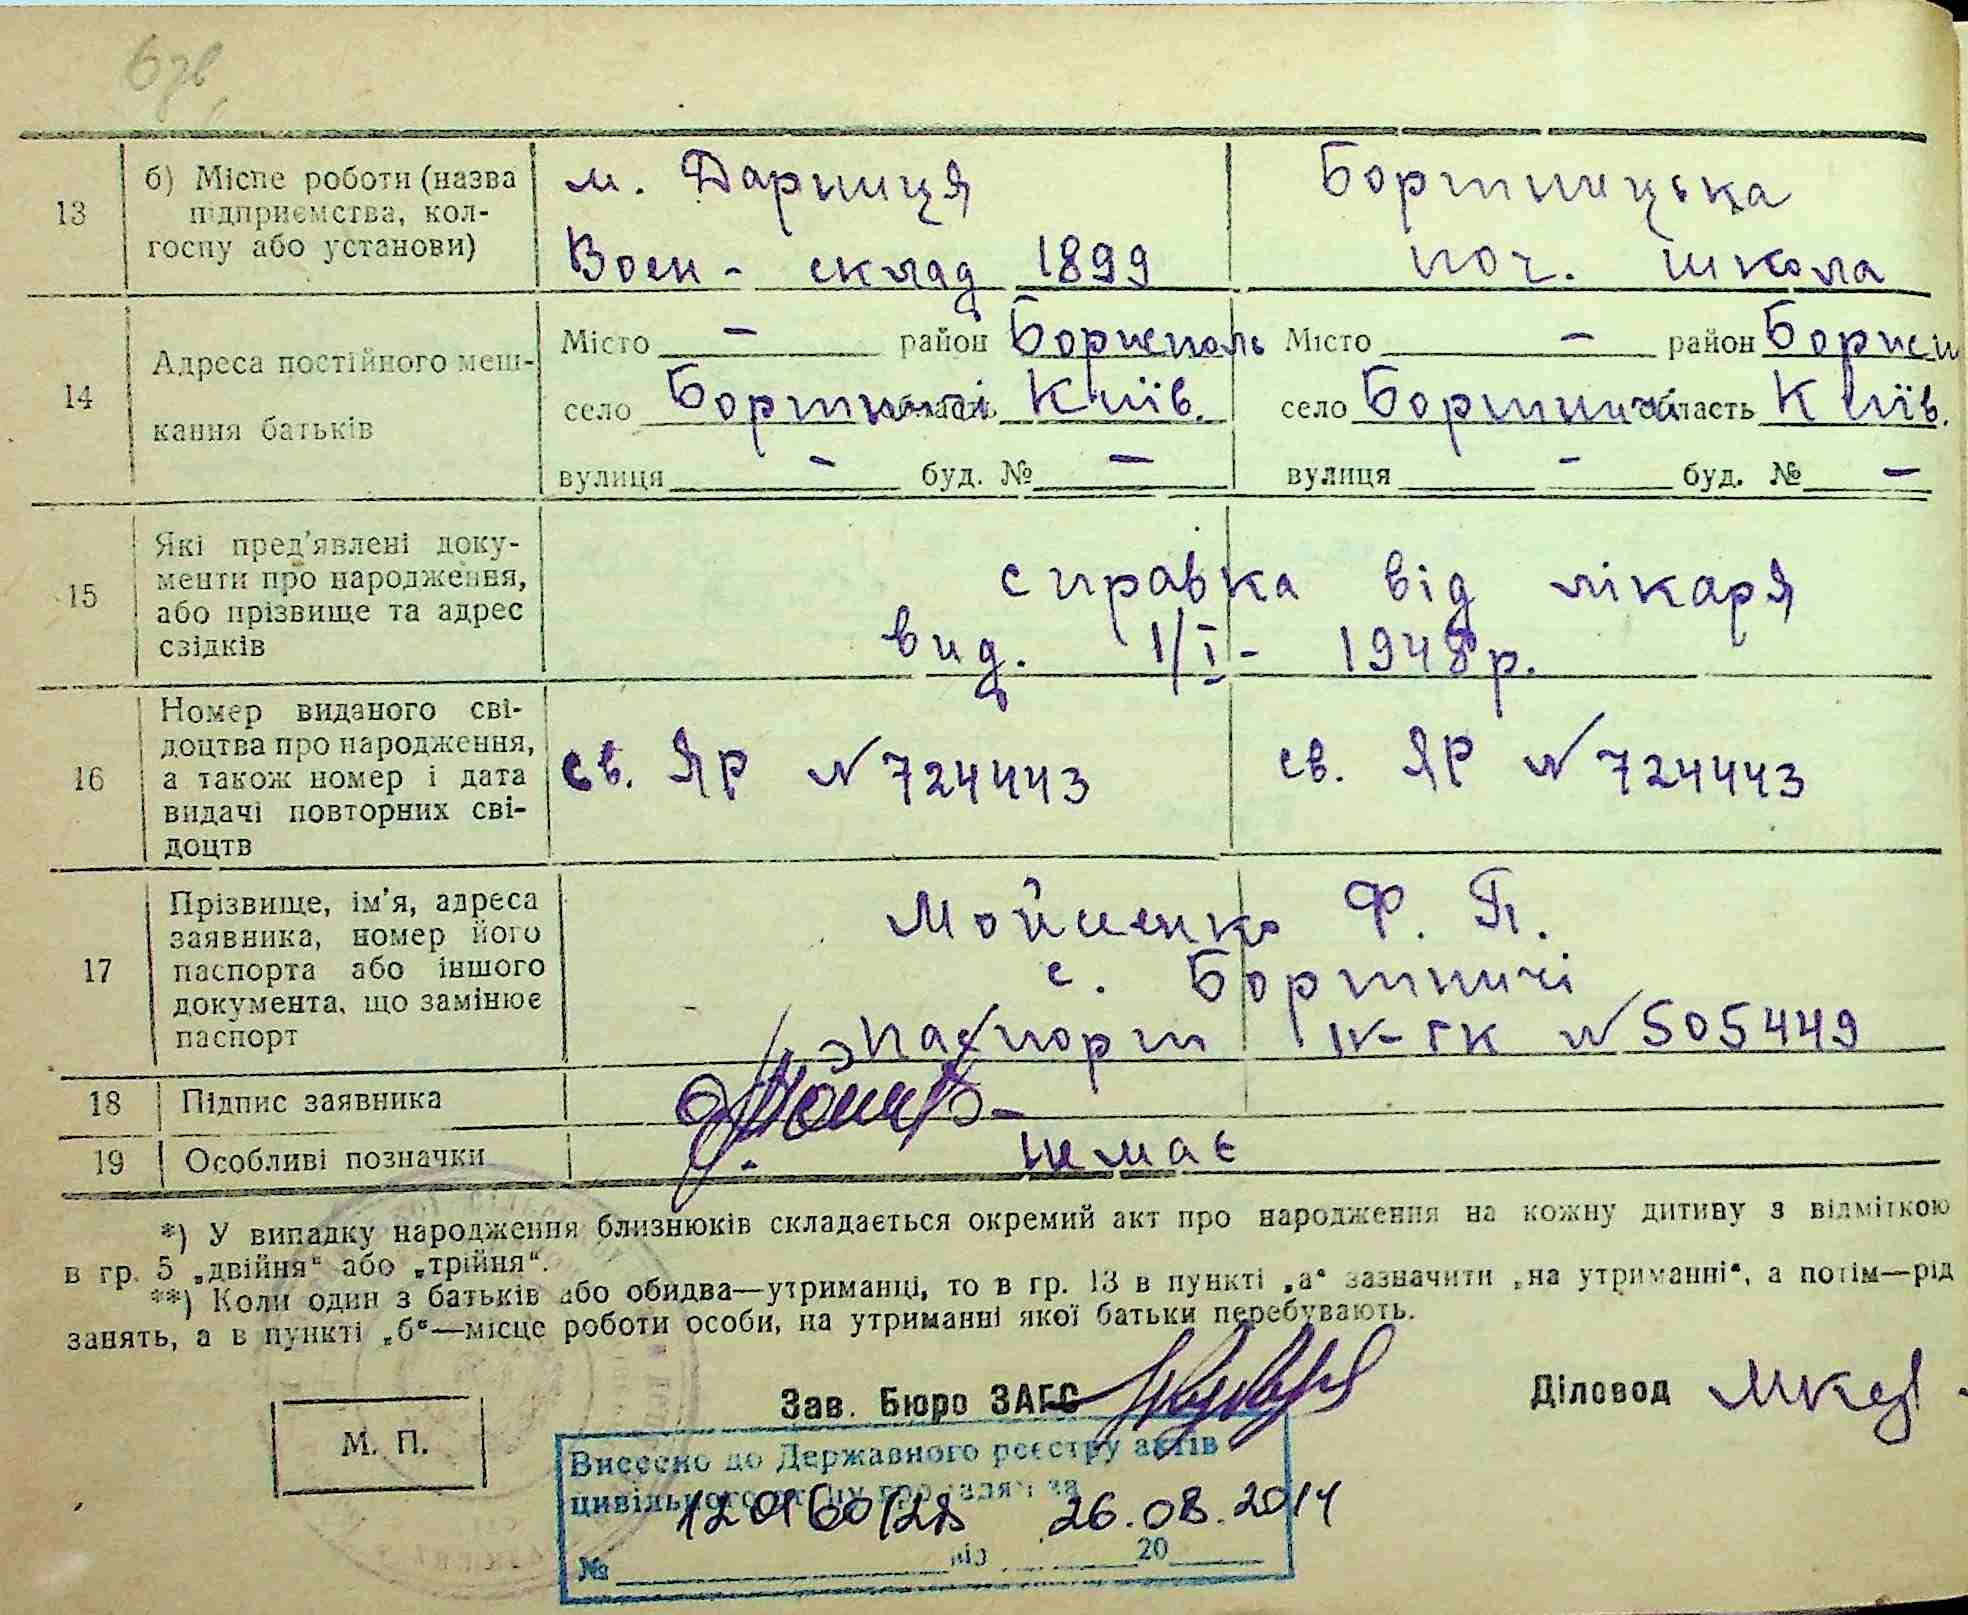 13
б) Місце роботи (назва
підприємства, кол-
госпу або установи)
м. Дарниця
Воен - склад 1899
Бортницька
поч. школа
14
Адреса постійного меш-
кання батьків
Місто – район Бориспіль
село Бортничі область Київ.
вулиця – буд. № –
Місто – район Борисп
село Бортничі область Київ.
вулиця – буд. № –
15
Які пред'явлені доку-
менти про народження,
або прізвище та адрес
свідків
справка від лікаря
вид. 1/I - 1948 р.
16
Номер виданого сві-
доцтва про народження,
а також номер і дата
видачі повторних сві-
доцтв
св. ЯР № 724443
св. ЯР № 724443
17
Прізвище, ім'я, адреса
заявника, номер його
паспорта або іншого
документа, що замінює
паспорт
Мойсенко Ф. П.
с. Бортничі
паспорт IV-ГК № 505449
18
Підпис заявника
19
Особливі позначки
немає
*) У випадку народження близнюків складається окремий акт про народження на кожну дитину з відміткою
в гр. 5 „двійня“ або „трійня“.
**) Коли один з батьків або обидва—утриманці, то в гр. 13 в пункті „а“ зазначити „на утриманні“, а потім—рід
занять, а в пункті „б“—місце роботи особи, на утриманні якої батьки перебувають.
Зав. Бюро ЗАГС
Діловод
М. П.
Внесено до Державного реєстру актів
цивільного стану громадян за
26.08.2014
№ від 20